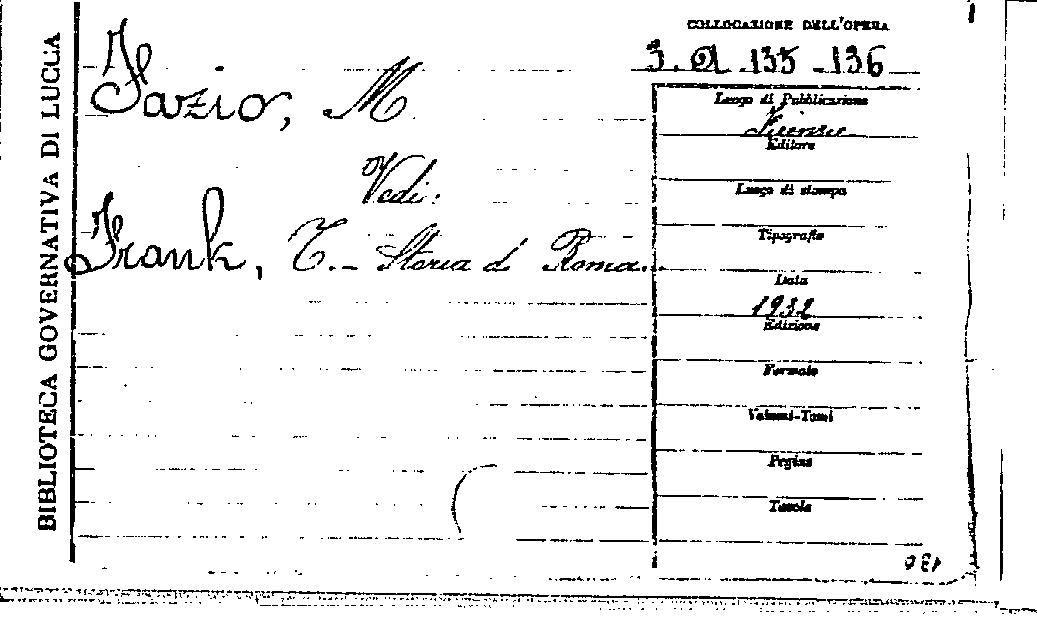 BIBLIOTECA GOVERNATIVA DI LUCCA
COLLOCAZIONE DELL'OPERA
3. A. 135 - 136
Fazio, M
Vedi:
Frank, T. - Storia di Roma.
Luogo di Pubblicazione
Firenze
Editore
Luogo di stampa
Tipografia
Data
1932
Edizione
Formato
Volumi-Tomi
Pagine
Tavole